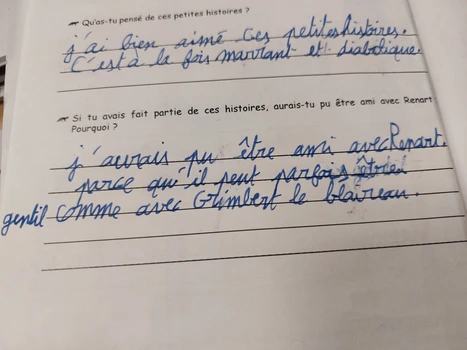 Qu'as-tu pensé de ces petites histoires ?
j'ai bien aimé ces petites histoires.
C'est à la fois marrant et diabolique.
Si tu avais fait partie de ces histoires, aurais-tu pu être ami avec Renart
Pourquoi ?
j'aurais pu être ami avec Renart.
parce qu'il peut parfois être
gentil comme avec Grimbert le blaireau.